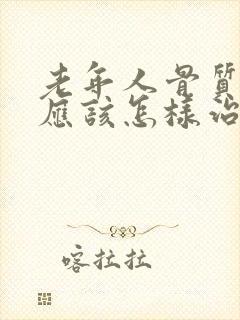 老年人骨質
應該怎樣治
喀拉拉